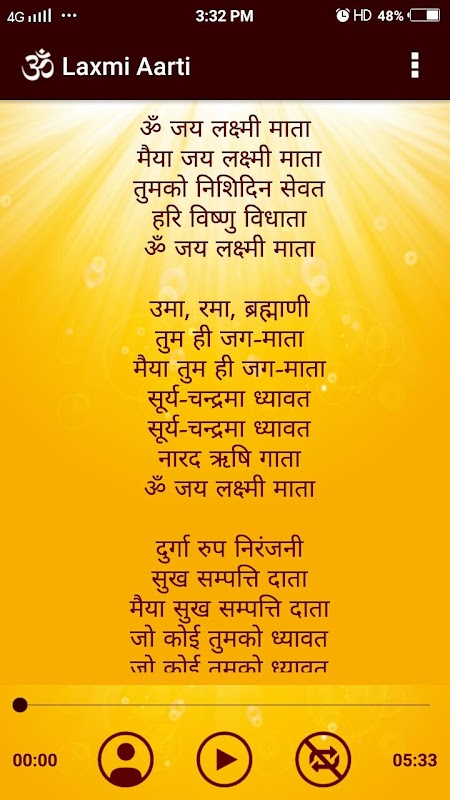 4G 3:32 PM HD 48%
ॐ Laxmi Aarti
ॐ जय लक्ष्मी माता
मैया जय लक्ष्मी माता
तुमको निशिदिन सेवत
हरि विष्णु विधाता
ॐ जय लक्ष्मी माता
उमा, रमा, ब्रह्माणी
तुम ही जग-माता
मैया तुम ही जग-माता
सूर्य-चन्द्रमा ध्यावत
सूर्य-चन्द्रमा ध्यावत
नारद ऋषि गाता
ॐ जय लक्ष्मी माता
दुर्गा रुप निरंजनी
सुख सम्पत्ति दाता
मैया सुख सम्पत्ति दाता
जो कोई तुमको ध्यावत
जो कोई तुमको ध्यावत
00:00 05:33